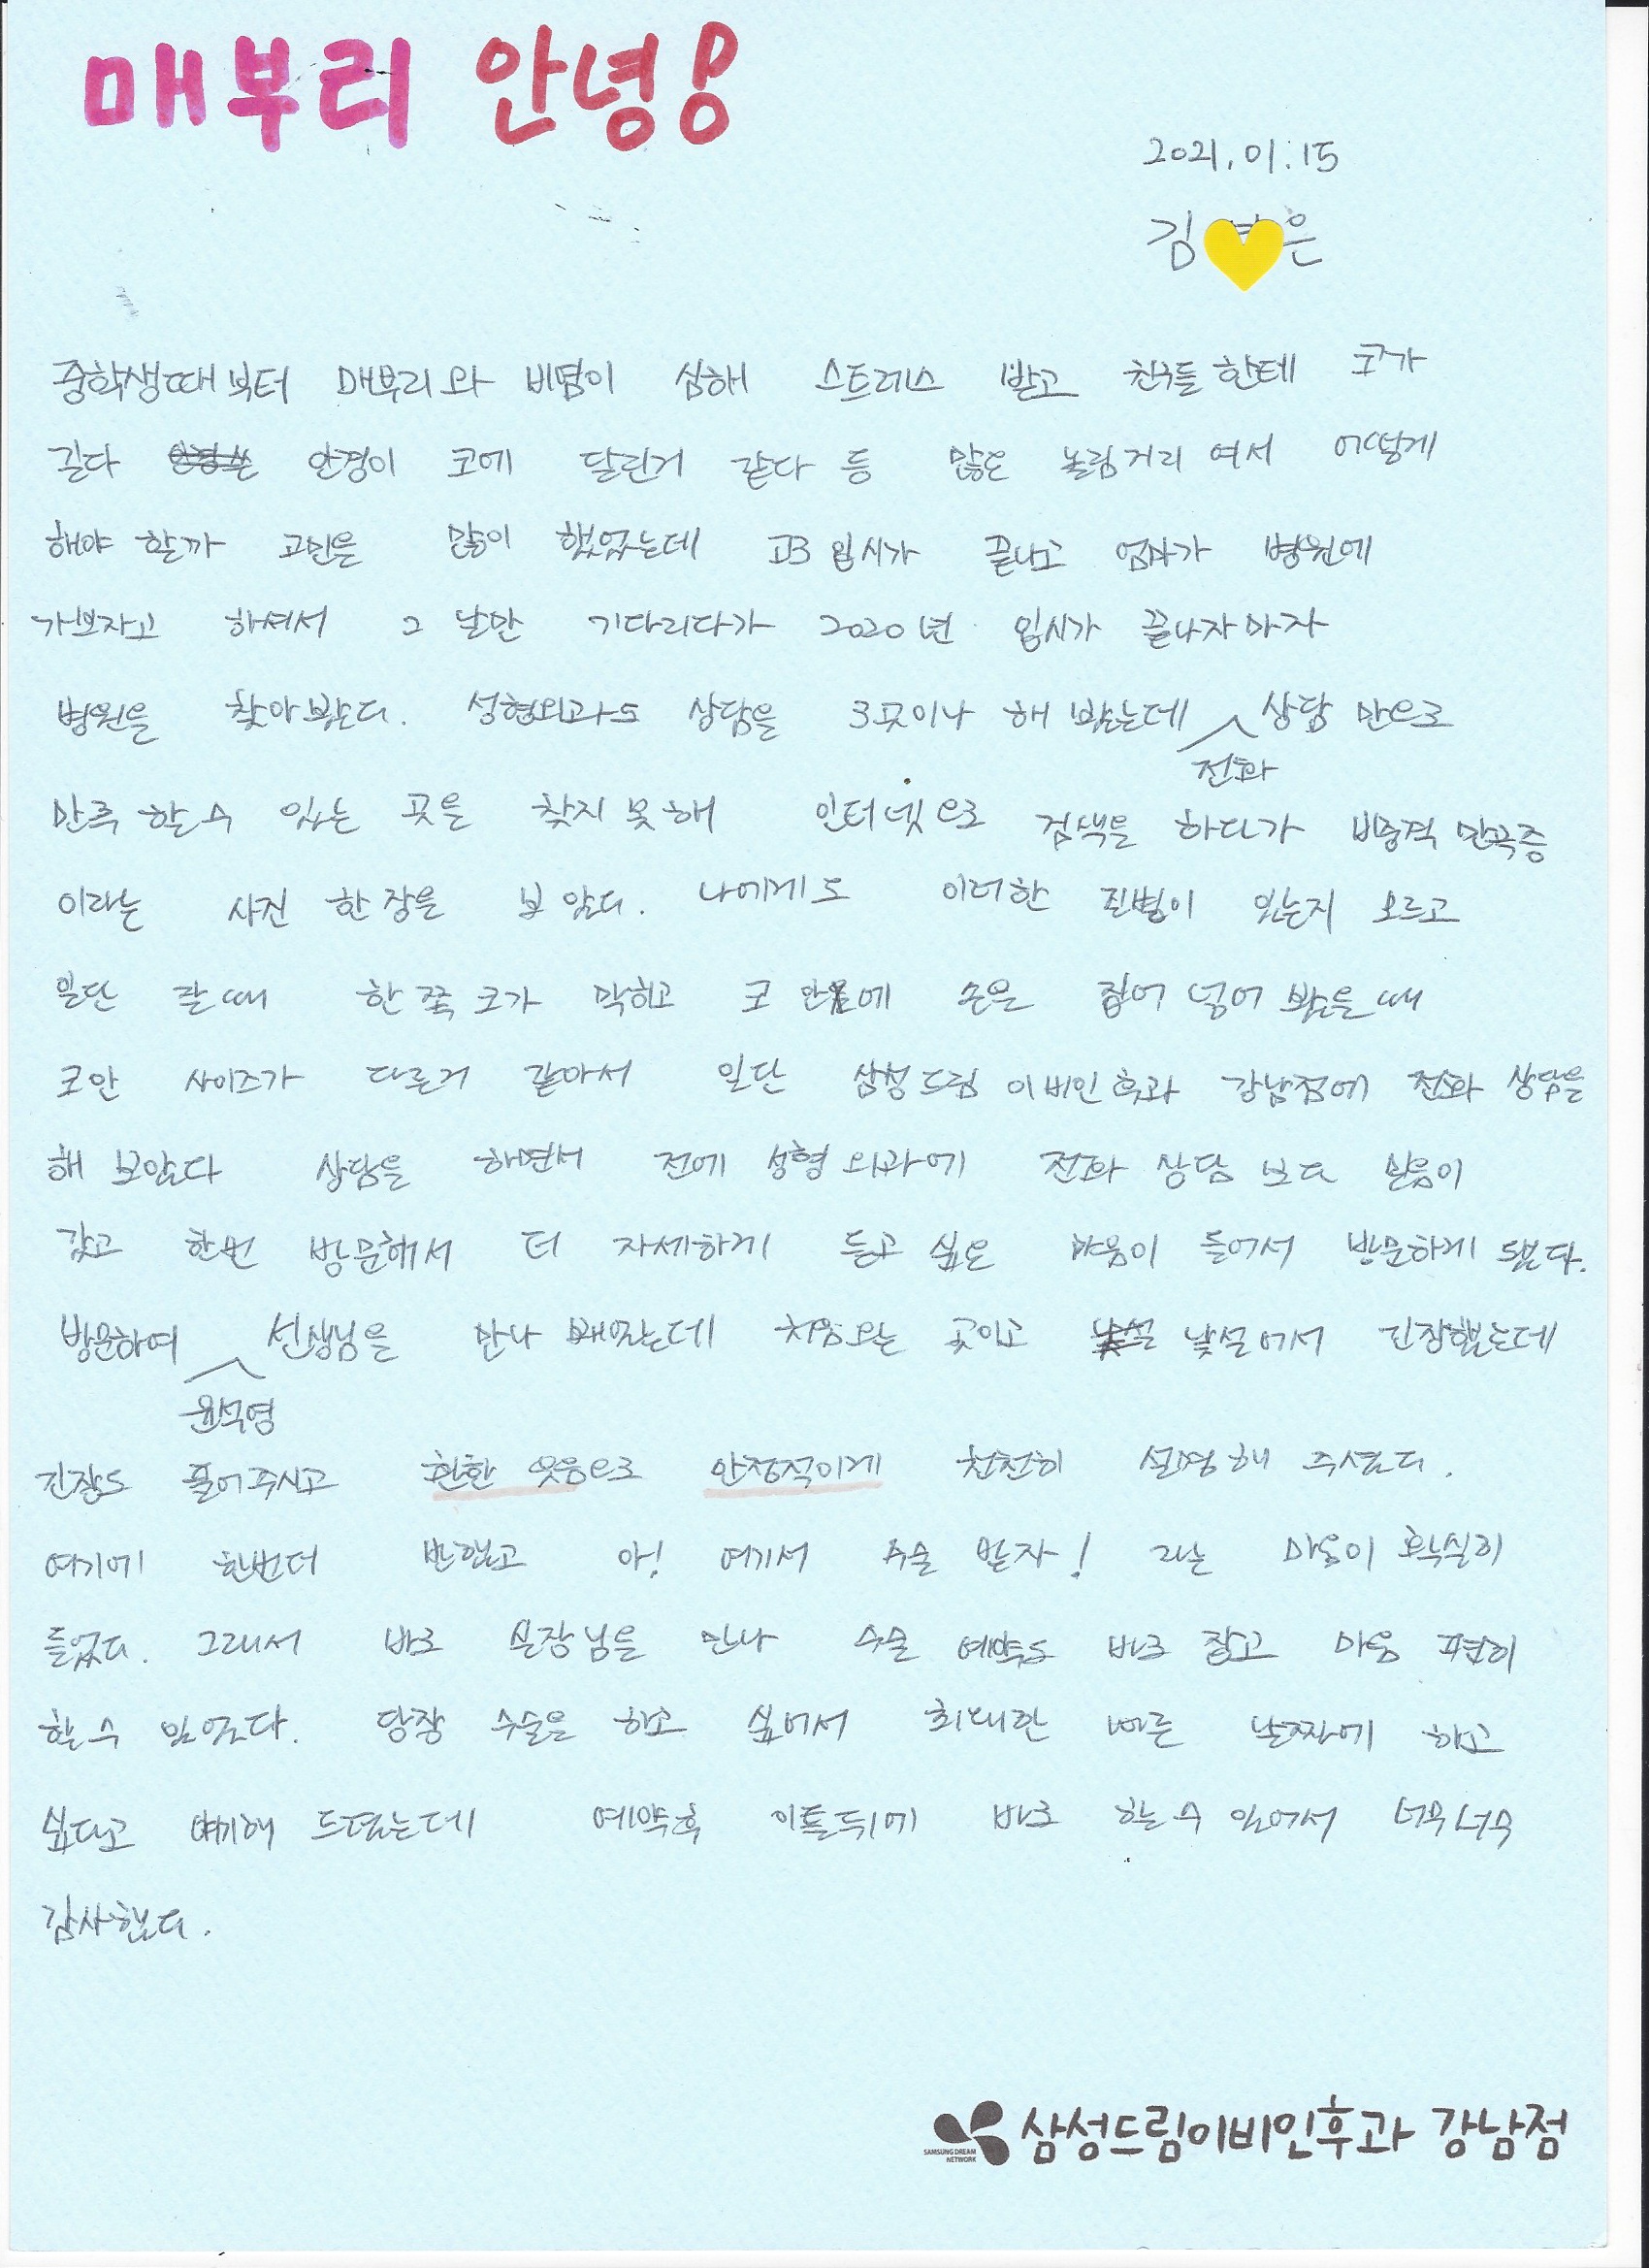 매부리 안녕!
2021.01.15
김 은
중학생때부터 매부리와 비염이 심해 스트레스 받고 친구들한테 코가
길다 안경이 코에 달린거 같다 등 많은 놀림거리 여서 어떻게
해야 할까 고민을 많이 했었는데 고3 입시가 끝나고 엄마가 병원에
가보자고 하셔서 그 날만 기다리다가 2020년 입시가 끝나자마자
병원을 찾아봤다. 성형외과도 상담을 3곳이나 해 봤는데 전화 상담 만으로
만족 할수 있는 곳을 찾지 못해 인터넷으로 검색을 하다가 비중격 만곡증
이라는 사진 한장을 보았다. 나에게도 이러한 질병이 있는지 모르고
일단 잘때 한쪽 코가 막히고 코 안에 손을 집어 넣어 봤을때
코안 사이즈가 다른거 같아서 일단 삼성드림 이비인후과 강남점에 전화 상담을
해 보았다 상담을 하면서 전에 성형외과에 전화 상담 보다 믿음이
갔고 한번 방문해서 더 자세하게 듣고 싶은 마음이 들어서 방문하게 됐다.
방문하여 윤석영 선생님을 만나 뵀었는데 처음오는 곳이고 낯설어서 긴장했는데
긴장도 풀어주시고 환한 웃음으로 안정적이게 천천히 설명해 주셨다.
여기에 한번더 반했고 아! 여기서 수술 받자! 라는 마음이 확실히
들었다. 그래서 바로 실장님을 만나 수술 예약도 바로 잡고 마음 편히
할수 있었다. 당장 수술을 하고 싶어서 최대한 빠른 날짜에 하고
싶다고 얘기해 드렸는데 예약후 이틀뒤에 바로 할수 있어서 너무너무
감사했다.
삼성드림이비인후과 강남점
SAMSUNG DREAM
NETWORK